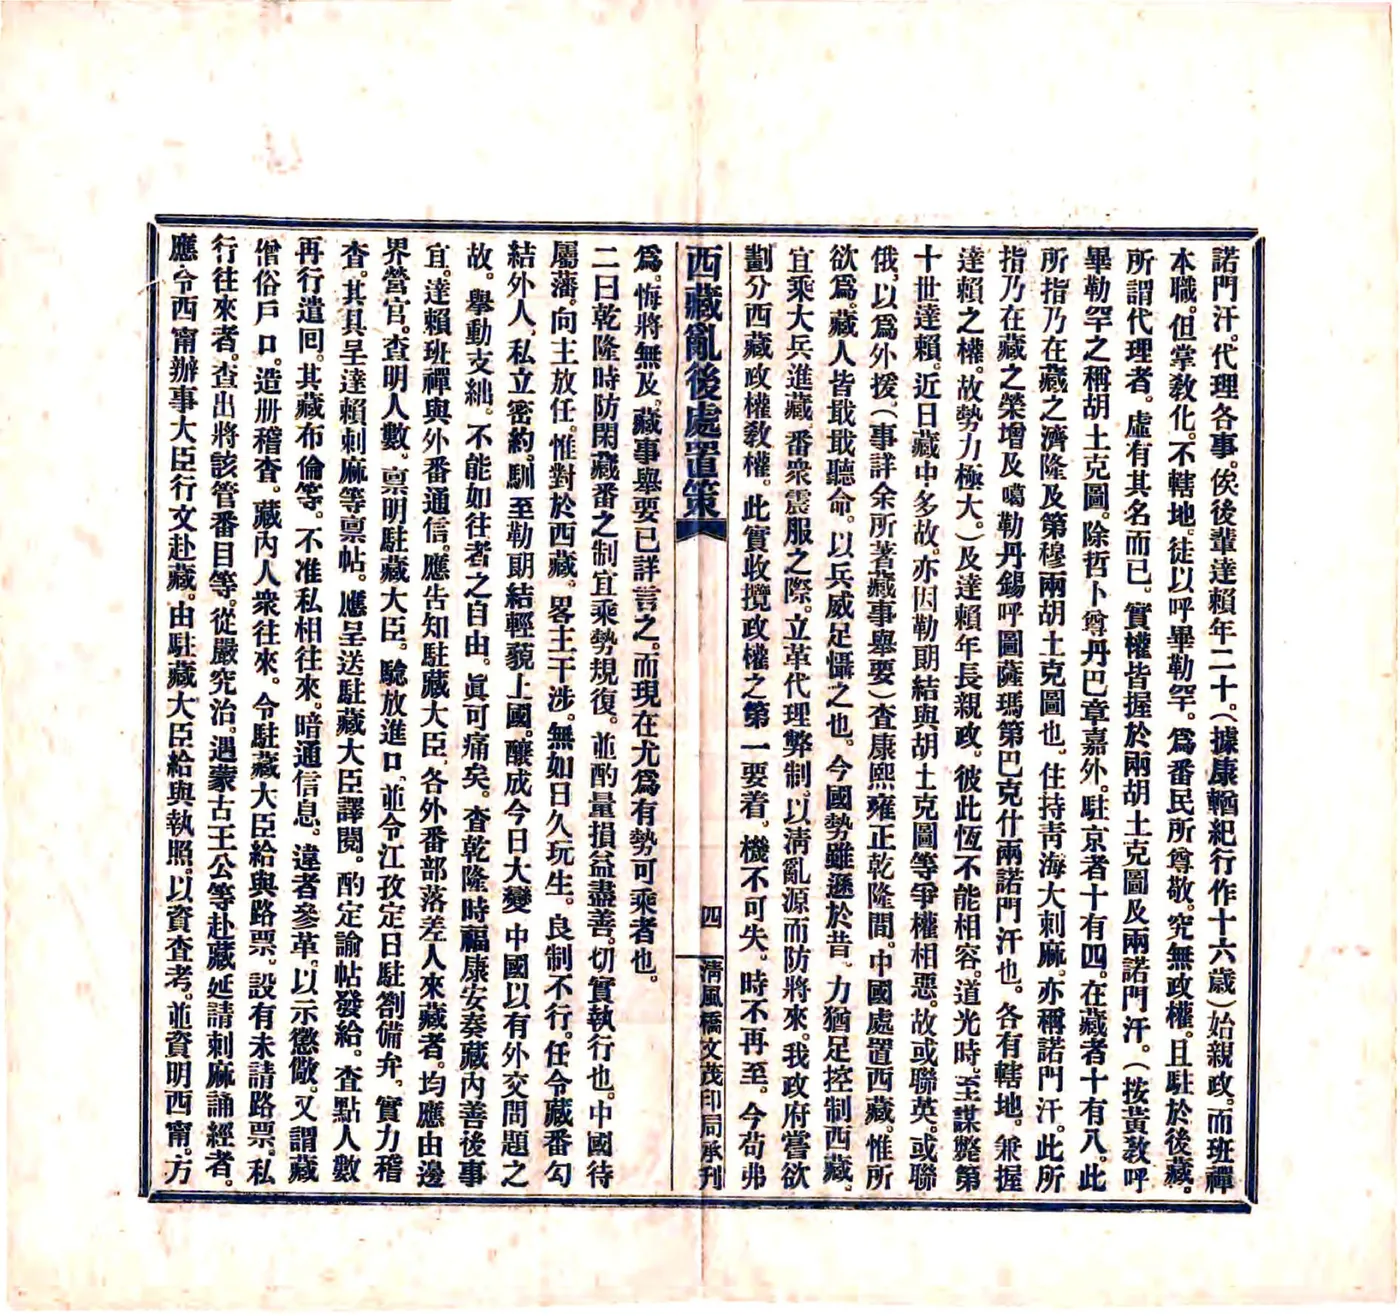 諾門汗。代理各事。俟後輩達賴年二十。（據康輶紀行作十六歲）始親政。而班禪
本職。但掌敎化。不轄地。徒以呼畢勒罕。爲番民所尊敬。究無政權。且駐於後藏。
所謂代理者。虛有其名而已。實權皆握於兩胡土克圖及兩諾門汗。（按黃敎呼
畢勒罕之稱胡土克圖。除哲卜尊丹巴章嘉外。駐京者十有四。在藏者十有八。此
所指乃在藏之濟隆及第穆兩胡土克圖也。住持靑海大刺麻。亦稱諾門汗。此所
指乃在藏之榮增及噶勒丹錫呼圖薩瑪第巴克什兩諾門汗也。各有轄地。兼握
達賴之權。故勢力極大。）及達賴年長親政。彼此恆不能相容。道光時。至謀斃第
十世達賴。近日藏中多故。亦因勒朗結與胡土克圖等爭權相惡。故或聯英。或聯
俄。以爲外援。（事詳余所著藏事舉要）査康熙雍正乾隆間。中國處置西藏。惟所
欲爲。藏人皆戢戢聽命。以兵威足懾之也。今國勢雖遜於昔。力猶足控制西藏。
宜乘大兵進藏。番衆震服之際。立革代理弊制。以淸亂源而防將來。我政府嘗欲
劃分西藏政權敎權。此實收攬政權之第一要着。機不可失。時不再至。今苟弗
西藏亂後處置策
四
淸風橋文茂印局承刊
爲。悔將無及。藏事舉要已詳言之。而現在尤爲有勢可乘者也。
二曰乾隆時防閑藏番之制宜乘勢規復。並酌量損益盡善。切實執行也。中國待
屬藩。向主放任。惟對於西藏。畧主干涉。無如日久玩生。良制不行。任令藏番勾
結外人。私立密約。馴至勒朗結輕藐上國。釀成今日大變。中國以有外交問題之
故。舉動支絀。不能如往者之自由。眞可痛矣。査乾隆時福康安奏藏內善後事
宜。達賴班禪與外番通信。應吿知駐藏大臣。各外番部落差人來藏者。均應由邊
界營官。査明人數。禀明駐藏大臣。驗放進口。並令江孜定日駐劄備弁。實力稽
査。其具呈達賴刺麻等禀帖。應呈送駐藏大臣譯閱。酌定諭帖發給。査點人數
再行遣回。其藏布倫等。不准私相往來。暗通信息。違者參革。以示懲儆。又謂藏
僧俗戶口。造册稽査。藏內人衆往來。令駐藏大臣給與路票。設有未請路票。私
行往來者。査出將該管番目等。從嚴究治。遇蒙古王公等赴藏延請刺麻誦經者。
應令西甯辦事大臣行文赴藏。由駐藏大臣給與執照。以資査考。並資明西甯。方